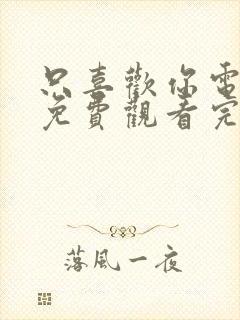 只喜歡你電
免費觀看完
落風一夜